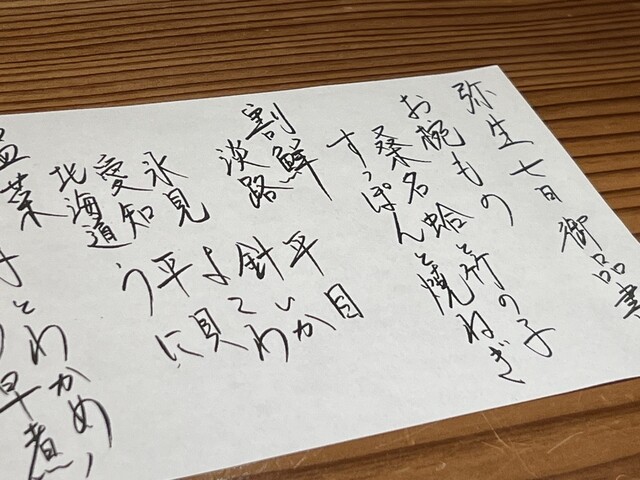 弥生七日 御品書
お椀もの
桑名蛤と竹の子
すっぽんと焼ねぎ
割鮮
淡路 平目
針いか
氷見 よこわ
愛知 平貝
北海道 うに
温菜
子とわかめ
早煮